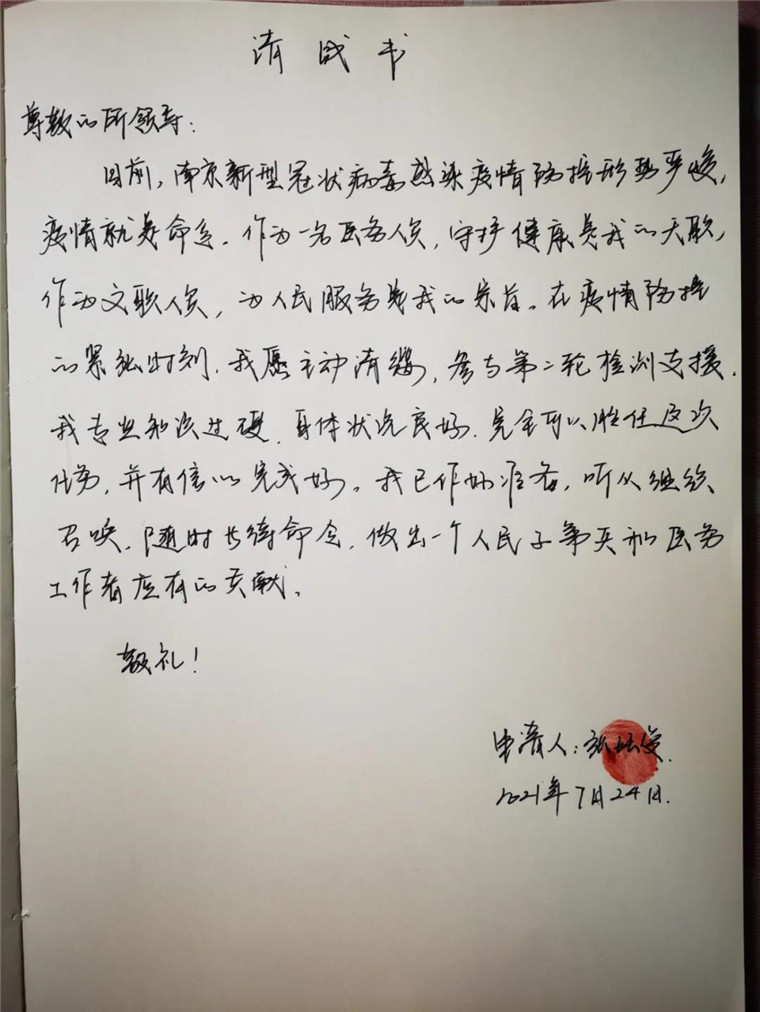 请战书
尊敬的所领导：
目前，南京新型冠状病毒感染疫情防控形势严峻，
疫情就是命令。作为一名医务人员，守护健康是我的天职，
作为文职人员，为人民服务是我的宗旨。在疫情防控
的紧张时刻，我愿主动请缨，参与第二轮检测支援。
我专业知识过硬，身体状况良好，完全可以胜任这次
任务，并有信心完成好。我已作好准备，听从组织
召唤，随时等待命令，做出一个人民子弟兵和医务
工作者应有的贡献。
敬礼！
申请人：张
2021年7月24日.